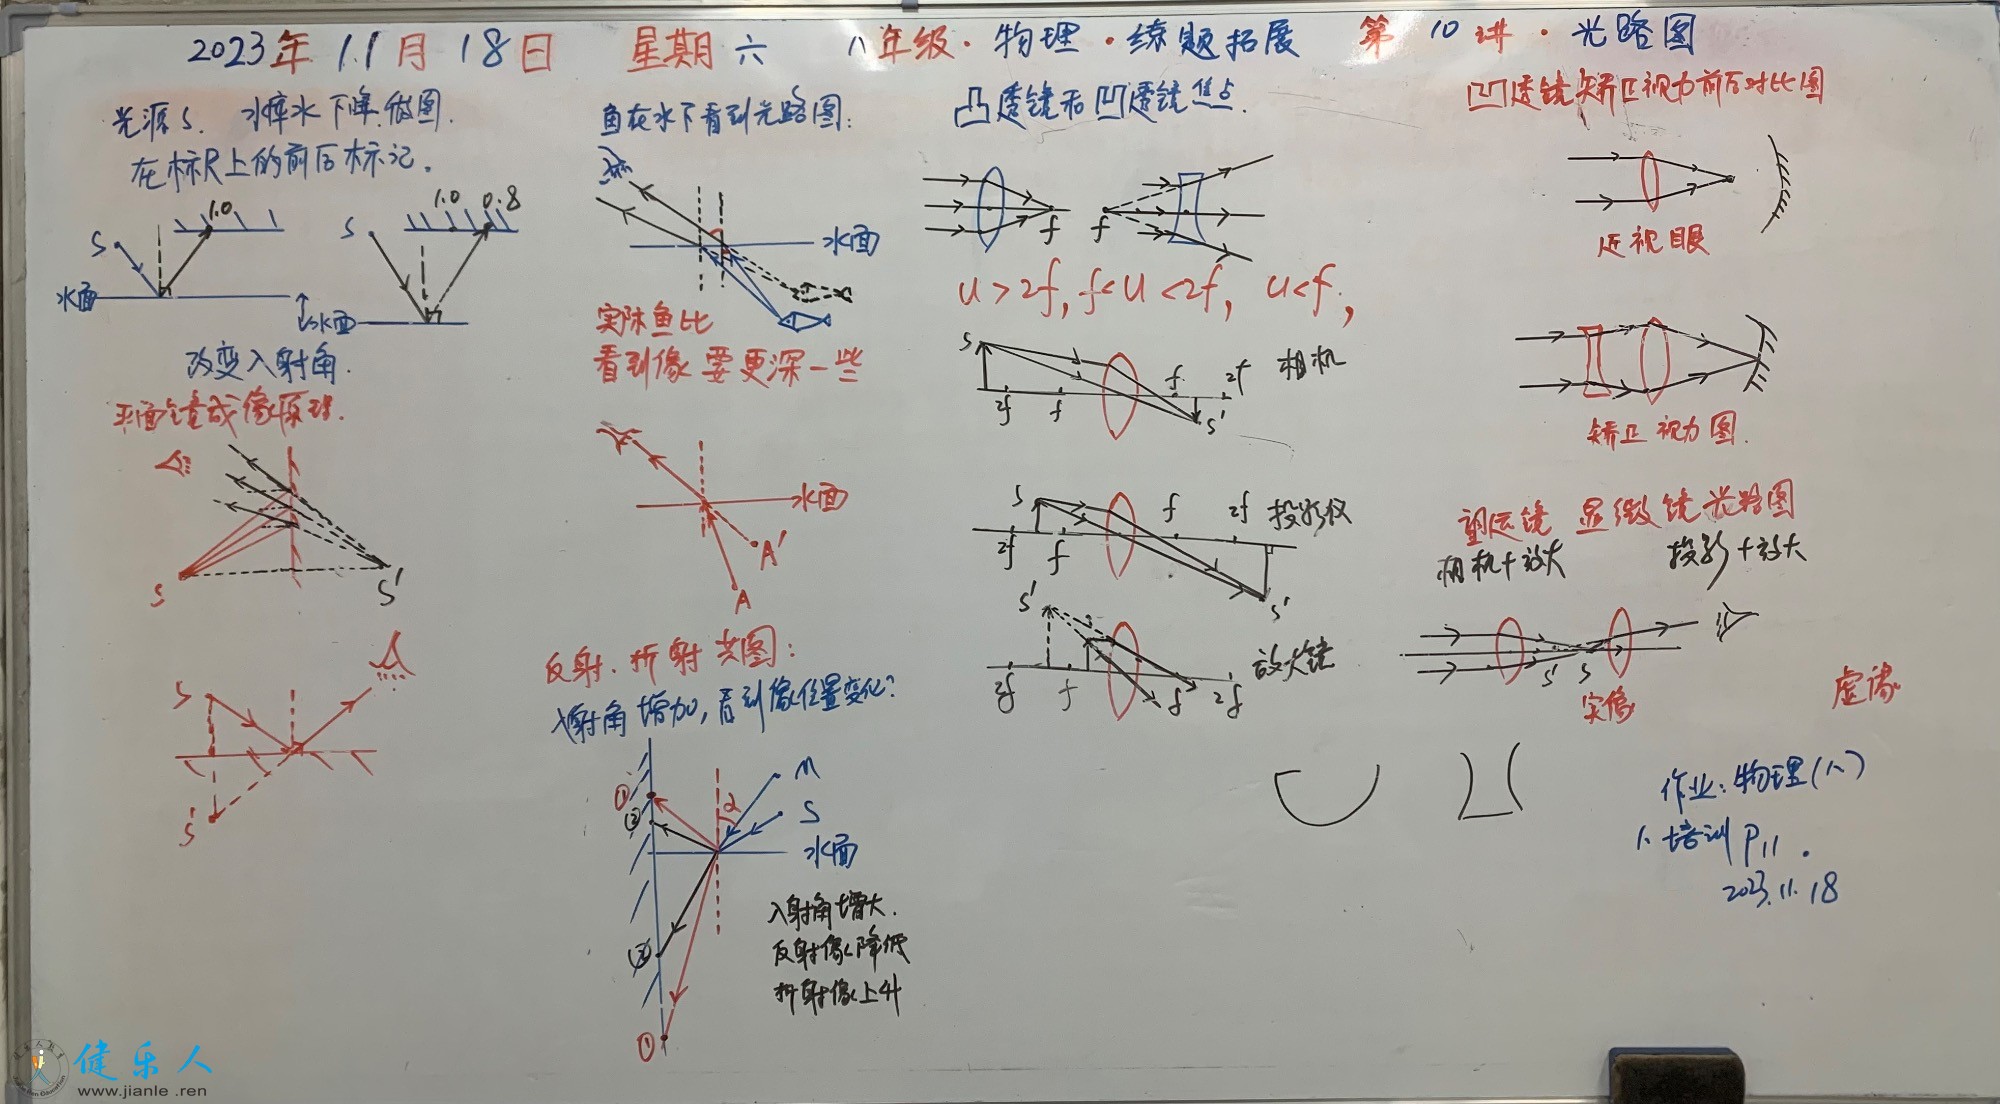 2023年11月18日 星期六 八年级·物理·练题拓展 第10讲·光路图
光源S. 水槽水下降,做图.
在标尺上的前后标记。
1.0
S
水面
1.0 0.8
S
水面
改变入射角.
平面镜成像原理.
S
S'
S
S'
鱼在水下看到光路图:
水面
实际鱼比
看到像要更深一些
水面
A'
A
反射.折射共图:
入射角增加,看到像位置变化?
M
S
α
水面
①
②
②
①
入射角增大.
反射像降低
折射像上升
凸透镜和凹透镜焦点.
f
f
u>2f, f<u<2f, u<f,
S
2f f f 2f
S'
相机
S
2f f f 2f
S'
投影仪
S'
2f f f 2f
放大镜
凹透镜矫正视力前后对比图
近视眼
矫正视力图.
望远镜 显微镜光路图
相机+放大 投影+放大
S' S
实像
虚像
作业:物理(八)
1、培训P11.
2023.11.18
健乐人
www.jianle.ren